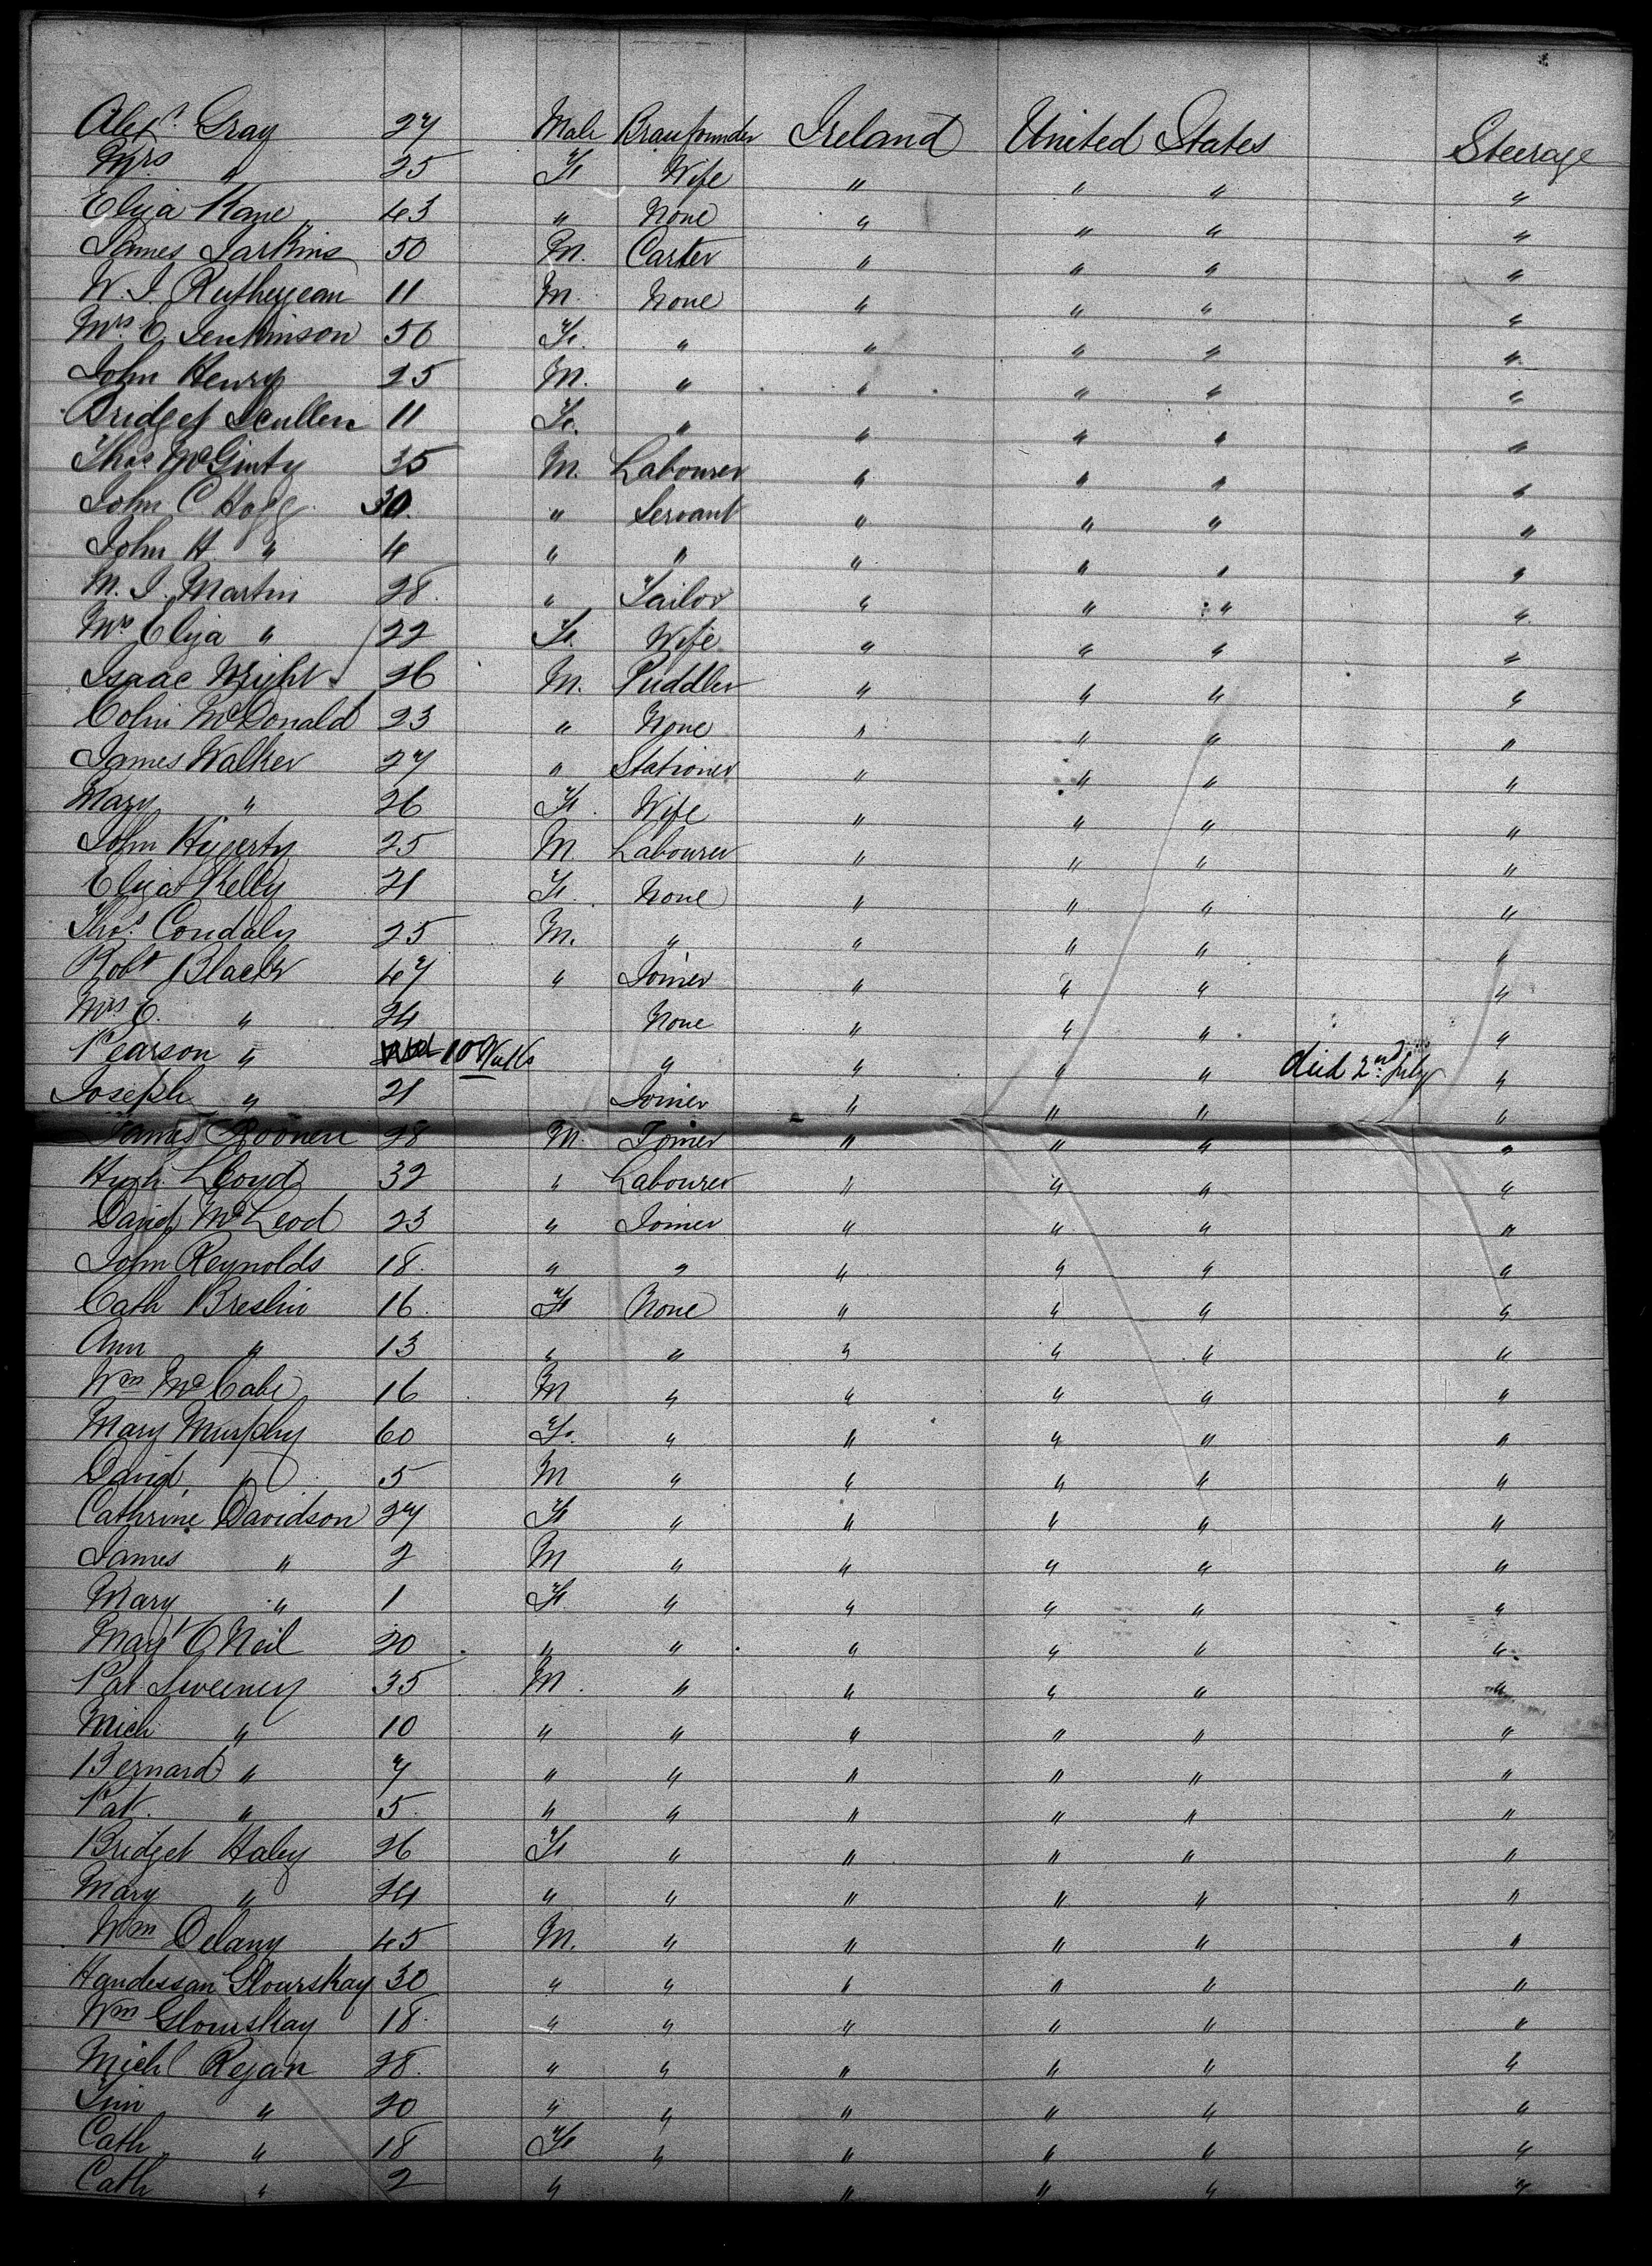 Alexr. Gray 27 Male Brassfounder Ireland United States Steerage
Mrs " 25 Fe Wife " " " "
Eliza Kane 43 " None " " " "
James Larkins 50 M. Carter " " " "
W. J. 11 M. None " " " "
Mrs E. Jenkinson 56 Fe. " " " " "
John Henry 25 M. " " " " "
Bridget Scullen 11 Fe. " " " " "
Thos McGinty 35 M. Labourer " " " "
John C Hogg 30. " Servant " " " "
John H. " 4 " " " " " "
M. J. Martin 28. " Tailor " " " "
Mrs Eliza " 22 Fe. Wife " " " "
Isaac Wright 26 M. Puddler " " " "
Colin McDonald 23 " None " " " "
James Walker 27 " Stationer " " " "
Mary " 26 Fe. Wife " " " "
John Higerty 25 M. Labourer " " " "
Eliza Kelly 21 Fe. None " " " "
Thos. Condaly 25 M. " " " " "
Robt Black 47 " Joiner " " " "
Mrs E. " 24 None " " " "
Pearson " 10 " " " " died 2nd July "
Joseph " 21 Joiner " " " "
James Roonen 28 M. Joiner " " " "
Hugh Lloyd 32 " Labourer " " " "
David McLeod 23 " Joiner " " " "
John Reynolds 18. " " " " " "
Cath Breslin 16. Fe None " " " "
Ann " 13 " " " " " "
Wm McCabe 16 M " " " " "
Mary Murphy 60 Fe. " " " " "
David " 5 M " " " " "
Cathrine Davidson 27 Fe " " " " "
James " 2 M " " " " "
Mary " 1 Fe. " " " " "
Mary O'Neil 20 " " " " " "
Pat Sweeney 35 M. " " " " "
Mich " 10 " " " " " "
Bernard " 7 " " " " " "
Pat. " 5. " " " " " "
Bridget Haley 26 Fe " " " " "
Mary " 24 " " " " " "
Wm Delany 45 M. " " " " "
Handessan Glourskay 30 " " " " " "
Wm Glourskay 18. " " " " " "
Michl Regan 28. " " " " " "
Tim " 20 " " " " " "
Cath " 18 Fe " " " " "
Cath " 2 " " " " " "